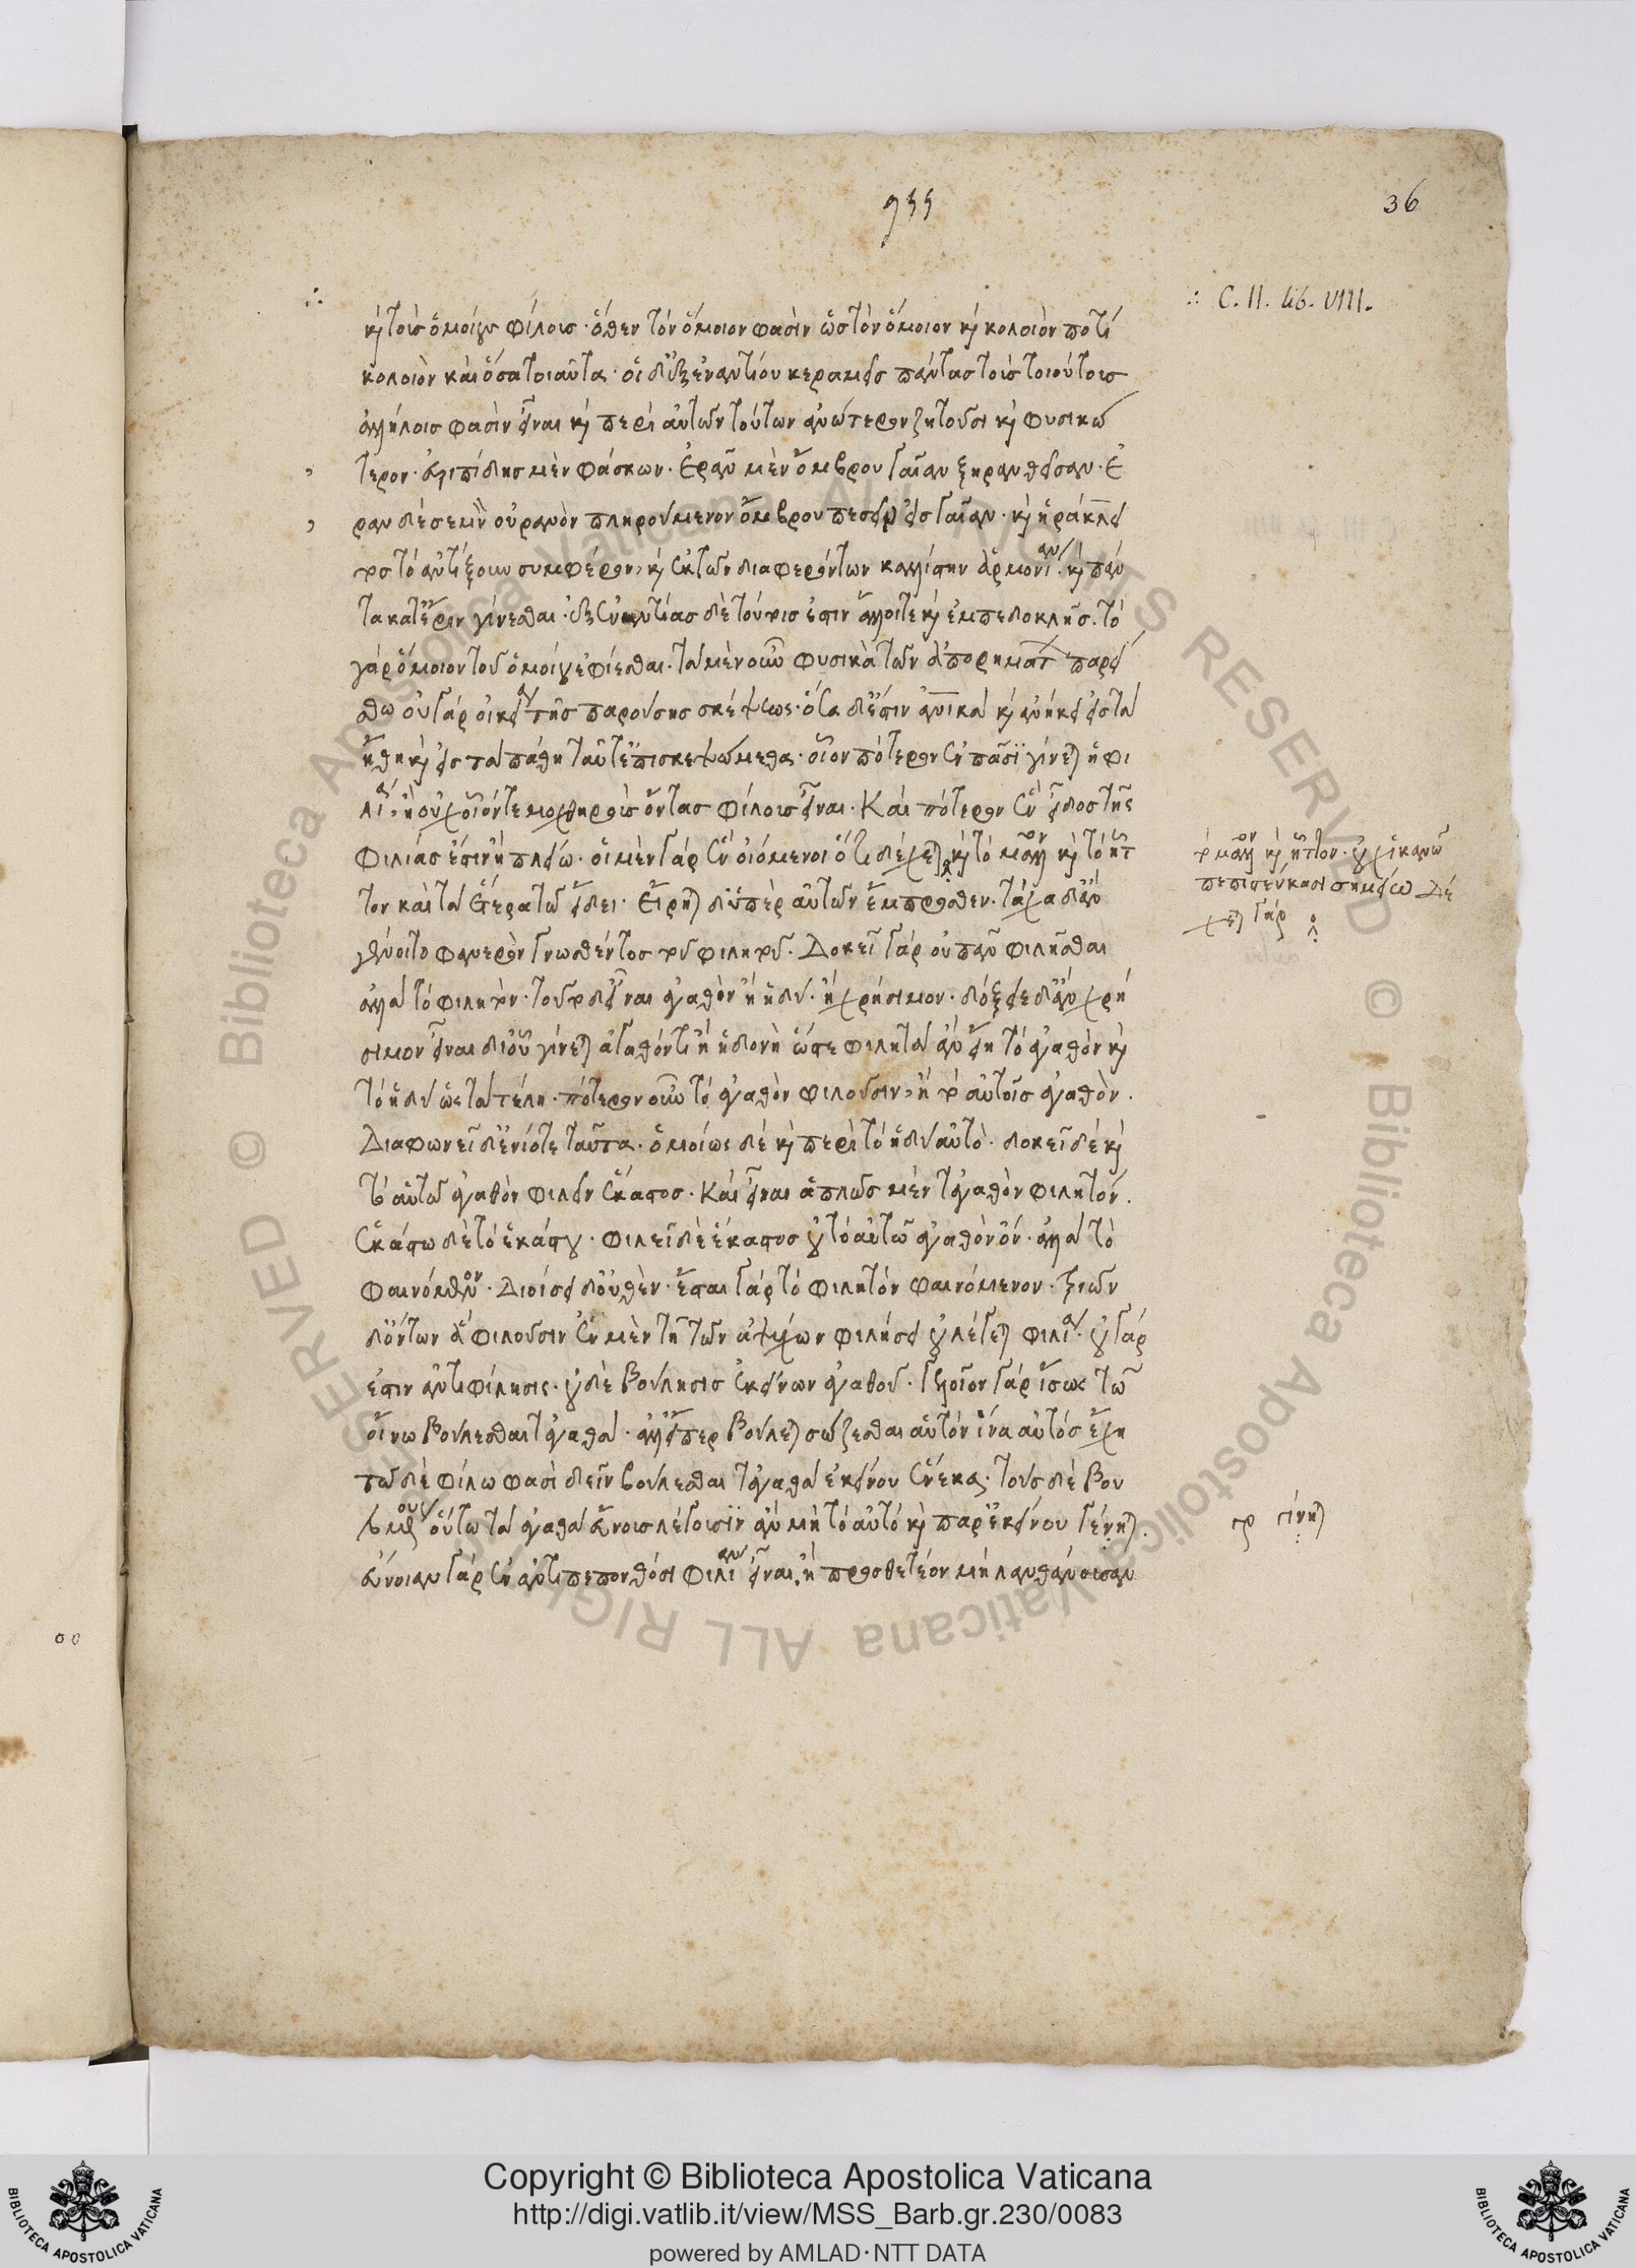 36
∴ C. II. lib. VIII.
καὶ τοῖς ὁμοίους φίλοις· ὅθεν τὸν ὅμοιον φασὶν ὡς τὸν ὅμοιον καὶ κολοιὸν ποτὶ
κολοιὸν καὶ ὅσα τοιαῦτα· οἱ δ' ἐξ ἐναντίου κεραμεῖς πάντας τοὺς τοιούτοις
ἀλλήλοις φασὶν εἶναι καὶ περὶ αὐτῶν τούτων ἀνώτερον ζητοῦσι καὶ φυσικώ
τερον· εὐριπίδης μὲν φάσκων· ἐρᾶν μὲν ὄμβρου γαῖαν ξηρανθεῖσαν· ἐ
ρᾶν δὲ σεμνὸν οὐρανὸν πληρούμενον ὄμβρου πεσεῖν εἰς γαῖαν· καὶ ἡράκλει
τος τὸ ἀντίξουν συμφέρον, καὶ ἐκ τῶν διαφερόντων καλλίστην ἁρμονίαν· καὶ πάν
τα κατ' ἔριν γίνεσθαι· ἐξ ἐναντίας δὲ τούτοις ἐστὶν ἄλλοι τε καὶ ἐμπεδοκλῆς· τὸ
γὰρ ὅμοιον τοῦ ὁμοίου ἐφίεσθαι· τὰ μὲν οὖν φυσικὰ τῶν ἀπορημάτ παρεί
σθω οὐ γὰρ οἰκεῖα τῆς παρούσης σκέψεως· ὅσα δ' ἐστὶν ἀνικὰ καὶ ἀνήκει εἰς τὰ
ἤθη καὶ εἰς τὰ πάθη ταῦτ' ἐπισκεψώμεθα· οἷον πότερον ἐν πᾶσι γίνεται ἡ φι
λία, ἢ οὐχ οἷόν τε μοχθηροὺς ὄντας φίλοις εἶναι· Καὶ πότερον ἓν εἶδος τῆς
φιλίας ἐστὶν ἢ πλείω· οἱ μὲν γὰρ ἓν οἰόμενοι ὅτι δέχεται καὶ τὸ μᾶλλον καὶ τὸ ἧτ
τον καὶ τὰ ἕτερα τῷ εἴδει· Εἴρηται δ' ὑπὲρ αὐτῶν ἔμπροσθεν· τάχα δ' ἂν
τὸ μᾶλλον καὶ ἧττον· οὐχ ἱκανῷ
πεπιστεύκασι σημείῳ Δέ
χεται γὰρ
γένοιτο φανερὸν γνωσθέντος τοῦ φιλητοῦ· Δοκεῖ γὰρ οὐ πᾶν φιλῆσθαι
ἀλλὰ τὸ φιλητὸν· τοῦτο δ' εἶναι ἀγαθὸν ἢ ἡδὺ· ἢ χρήσιμον· δόξειε δ' ἂν χρή
σιμον εἶναι δι' οὗ γίνεται ἀγαθόν τι ἢ ἡδονὴ ὥστε φιλητὰ ἂν εἴη τὸ ἀγαθὸν καὶ
τὸ ἡδὺ ὡς τὰ τέλη· πότερον οὖν τὸ ἀγαθὸν φιλοῦσιν, ἢ τὸ αὐτοῖς ἀγαθὸν·
Διαφωνεῖ δ' ἐνίοτε ταῦτα· ὁμοίως δὲ καὶ περὶ τὸ ἡδὺ αὐτὸ· δοκεῖ δὲ καὶ
τὸ αὑτῷ ἀγαθὸν φιλεῖν ἕκαστος· Καὶ εἶναι ἁπλῶς μὲν τἀγαθὸν φιλητόν·
ἑκάστῳ δὲ τὸ ἑκάστου· φιλεῖ δὲ ἕκαστος οὐ τὸ αὑτῷ ἀγαθὸν ὄν· ἀλλὰ τὸ
φαινόμενον· Διοίσει δ' οὐθέν· ἔσται γὰρ τὸ φιλητὸν φαινόμενον· τριῶν
δ' ὄντων δι' ἃ φιλοῦσιν ἐν μὲν τῇ τῶν ἀψύχων φιλήσει οὐ λέγεται φιλία· οὐ γάρ
ἐστιν ἀντιφίλησις· οὐδὲ βούλησις ἐκείνων ἀγαθοῦ· γελοῖον γὰρ ἴσως τῷ
οἴνῳ βούλεσθαι τἀγαθά· ἀλλ' εἴπερ βούλεται σώζεσθαι αὐτὸν ἵνα αὐτὸς ἔχῃ
τῷ δὲ φίλῳ φασὶ δεῖν βούλεσθαι τἀγαθὰ ἐκείνου ἕνεκα· τοὺς δὲ βου
λομένους οὕτω τἀγαθὰ εὔνοις λέγουσιν ἂν μὴ τὸ αὐτὸ καὶ παρ' ἐκείνου γένηται·
εὔνοιαν γὰρ ἐν ἀντιπεπονθόσι φιλίαν εἶναι, ἢ προσθετέον μὴ λανθάνουσαν
Copyright © Biblioteca Apostolica Vaticana
http://digi.vatlib.it/view/MSS_Barb.gr.230/0083
powered by AMLAD·NTT DATA